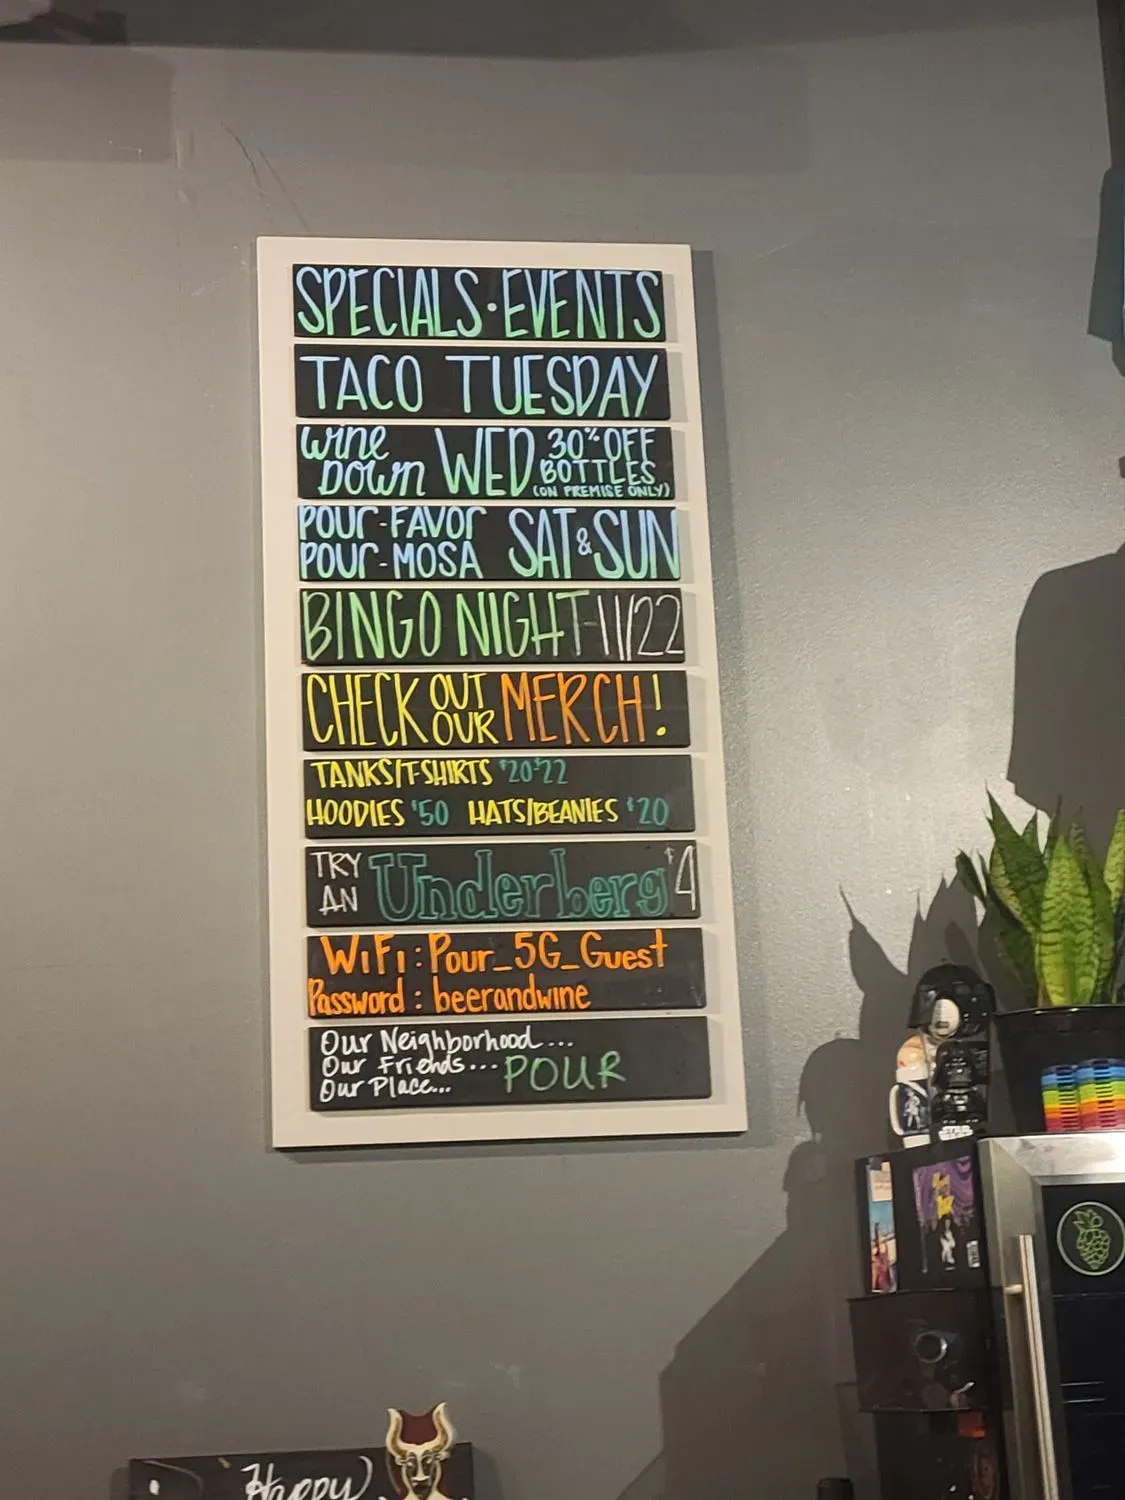 SPECIALS · EVENTS
TACO TUESDAY
wine DOWN WED 30% OFF BOTTLES (ON PREMISE ONLY)
POUR-FAVOR POUR-MOSA SAT & SUN
BINGO NIGHT-11/22
CHECK OUT OUR MERCH!
TANKS/T-SHIRTS $20-22
HOODIES $50 HATS/BEANIES $20
TRY AN Underberg $4
WiFi: Pour_5G_Guest
Password: beerandwine
Our Neighborhood...
Our Friends... POUR
Our Place...
STAR WARS
Happy